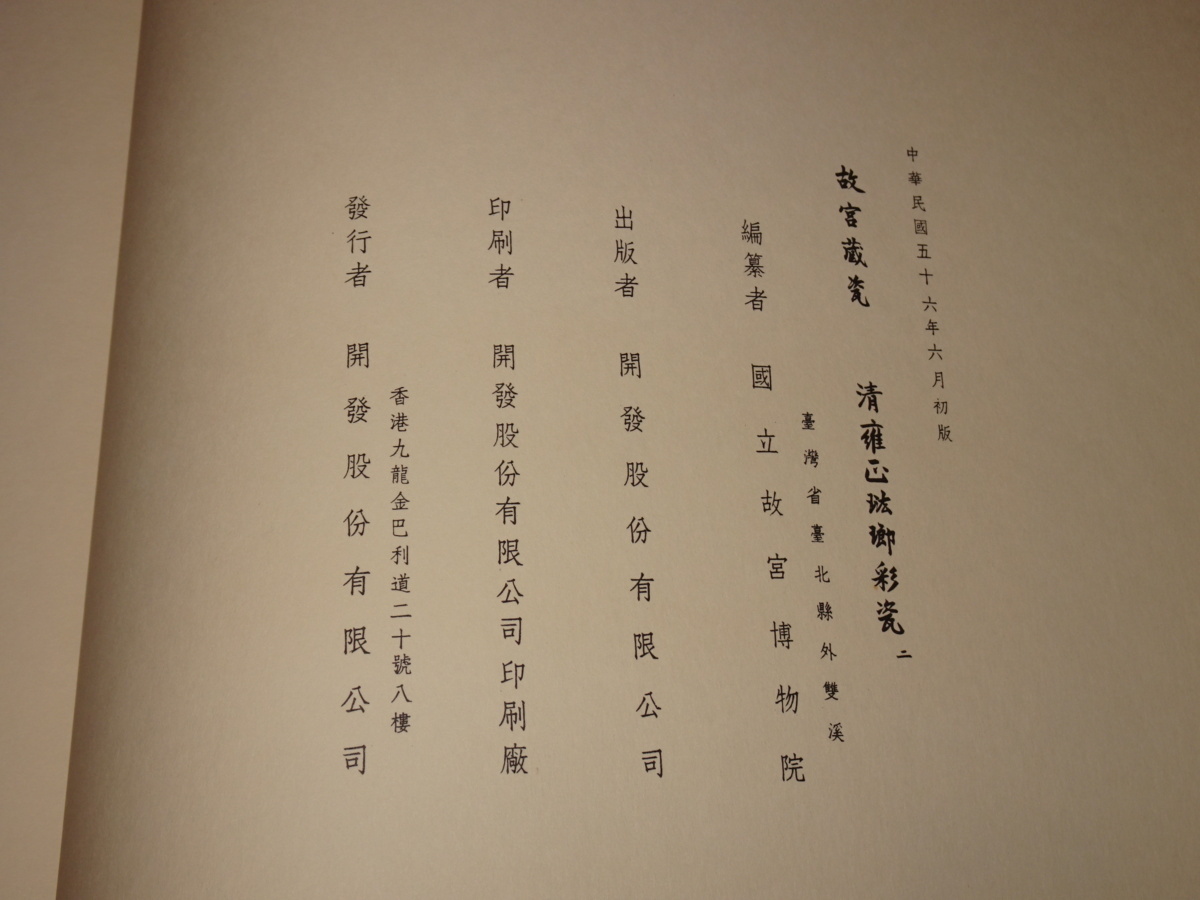 中華民國五十六年六月初版
故宮藏瓷 清雍正琺瑯彩瓷 二
臺灣省臺北縣外雙溪
編纂者 國立故宮博物院
出版者 開發股份有限公司
印刷者 開發股份有限公司印刷廠
香港九龍金巴利道二十號八樓
發行者 開發股份有限公司